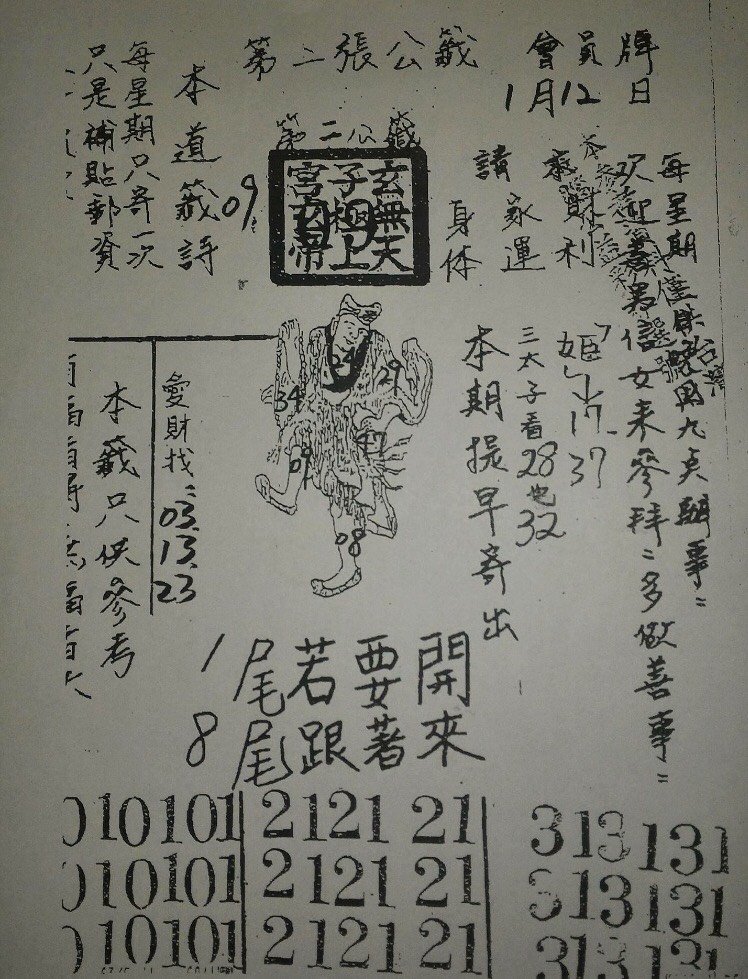 會員牌
1月12日
第二張公籤
第二公籤
玄無天
子極上
宮玄帝
09
每星期
欢迎善男信女来參拜：多做善事：
台灣
求財利
請家運
身体
本道籤詩
09
每星期只寄一次
只是補貼郵資
姬
17
37
三太子看28也32
本期提早寄出
24
29
34
47
09
08
愛財找：03.13.23
本籤只供參考
1尾若要開
8尾跟著來
10101 2121 21 313131
10101 2121 21 313131
10101 2121 21 313131